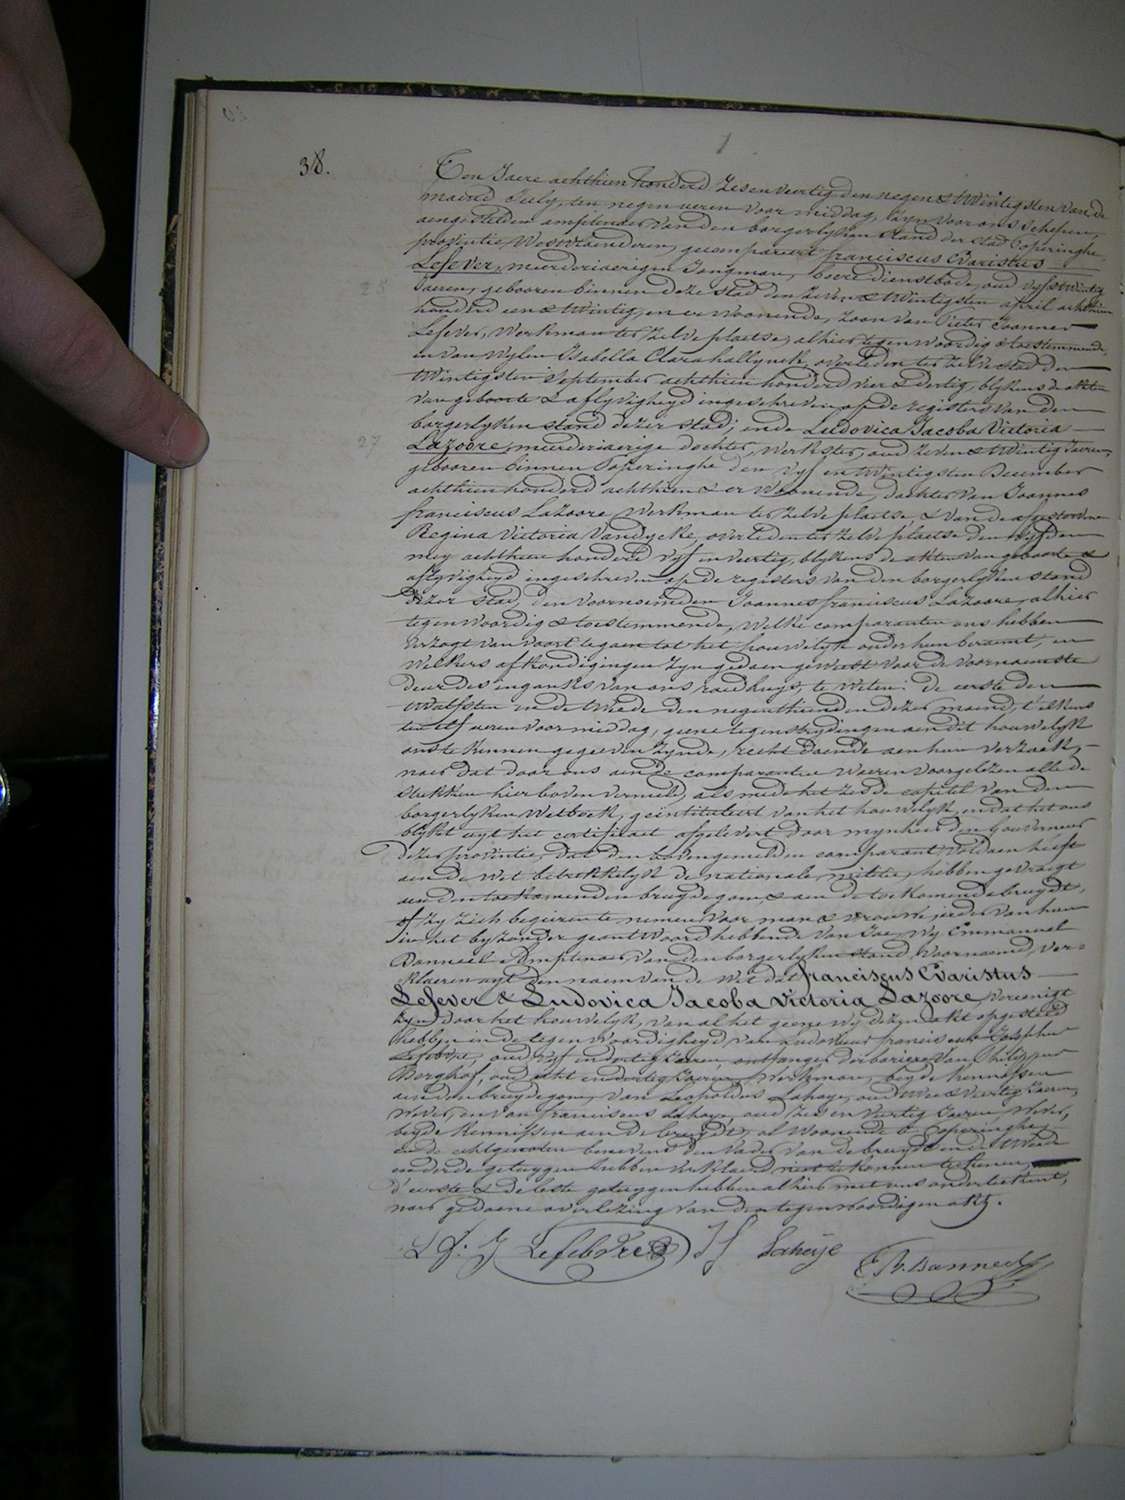 1
38.
Ten Jaere achthien honderd zesenveertig den negen & twintigsten van de
maend July, ten negen ueren voor middag, zyn voor ons schepen,
aengestelden amptenaer van den borgerlyken stand der stad Poperinghe,
provintie Westvlaenderen, gecompareert franciscus Evaristus
Lefever, meerderjaerigen Jongman, boere dienstbode, oud vyfentwintig
25
Jaeren, gebooren binnen deze stad den zeven & twintigsten april achthien
honderd een & twintig, en er woonende, zoon van Pieter Joannes
Lefever, Werkman ter zelve plaetse, alhier tegenwoordig & toestemmende,
en van wylen Isabella Clara hallynck, overleden ter zelve stad den
twintigsten September achthien honderd vier & dertig, blykens de akten
van geboorte & aflyvigheyd ingeschreven op de registers van den
borgerlyken stand dezer stad; ende Ludovica Jacoba Victoria
27
Lazoore, meerderjaerige dochter, werkster, oud zeven & twintig Jaeren,
gebooren binnen Poperinghe den vyf en twintigsten December
achthien honderd achthien & er woonende, dochter van Joannes
franciscus Lazoore, werkman ter zelve plaetse & van de afgestorvene
Regina Victoria Vandycke, overleden ter zelve plaetse den vyfden
mey achthien honderd vyf en veertig, blykens de akten van geboorte &
aflyvigheyd ingeschreven op de registers van den borgerlyken stand
dezer stad, den voornoemden Joannes franciscus Lazoore, alhier
tegenwoordig & toestemmende, Welke comparanten ons hebben
verzogt van voort te gaen tot het houwelyk onder hun beraemt, en
Welkers afkondigingen zyn gedaen geweest voor de voornaemste
deur des ingangs van ons raedhuys, te weten: de eerste den
twalfsten en de tweede den negenthienden dezer maend, t'elkens
ten elf ueren voor middag, geene tegenstrydingen aen dit houwelyk
ons te kennen gegeven zynde, recht doende aen hun verzoek,
naer dat door ons aen de comparanten waeren voorgelezen alle de
stukken hier boven vermelt, als mede het zesde capitel van den
borgerlyken Wetboek, geïntituleert van het houwelyk, en dat het ons
blykt uyt het certificaet afgelevert door mynheer den Gouverneur
dezer provintie, dat den bovengemelden comparant voldaen heeft
aen de wet betrekkelyk de nationale militie, hebben gevraegt
aen den toekomenden bruydegom & aen de toekomende bruydt,
of zy zich begeiren te nemen voor man & vrouwe, ieder van hun
in het byzonder geantwoord hebbende Van Jae, wy Emmanuel
Banneel Amptenaer van den borgerlyken stand, voornoemd, ver-
klaeren uyt den naem van de wet dat franciscus Evaristus
Lefever & Ludovica Jacoba Victoria Lazoore, vereenigt
zyn door het houwelyk, van al het geene wy dezen akt opgesteld
hebben in de tegenwoordigheyd van Ludovicus francis cus Josephus
Lefebvre, oud vyf en dertig Jaeren, ontfanger der bariere, van Philippus
Berghof, oud acht en dertig Jaeren, Werkman, beyde kennissen
aen den bruydegom, van Leopoldus Lahaye, oud twee & veertig Jaeren,
wever, en van franciscus Lahaye, oud zes en veertig Jaeren, Wever,
beyde kennissen aen de bruydt, al woonende te Poperinghe,
en de echtgenoten benevens den vader van de bruyd en de tweede
en derde getuygen hebben verklaerd niet te konnen teekenen,
d'eerste & de leste getuygen hebben alhier met ons onderteekent,
naer gedaene overlezing van den tegenwoordigen akt.
L F: J Lefebvre J f Lahaije
E B. Banneel